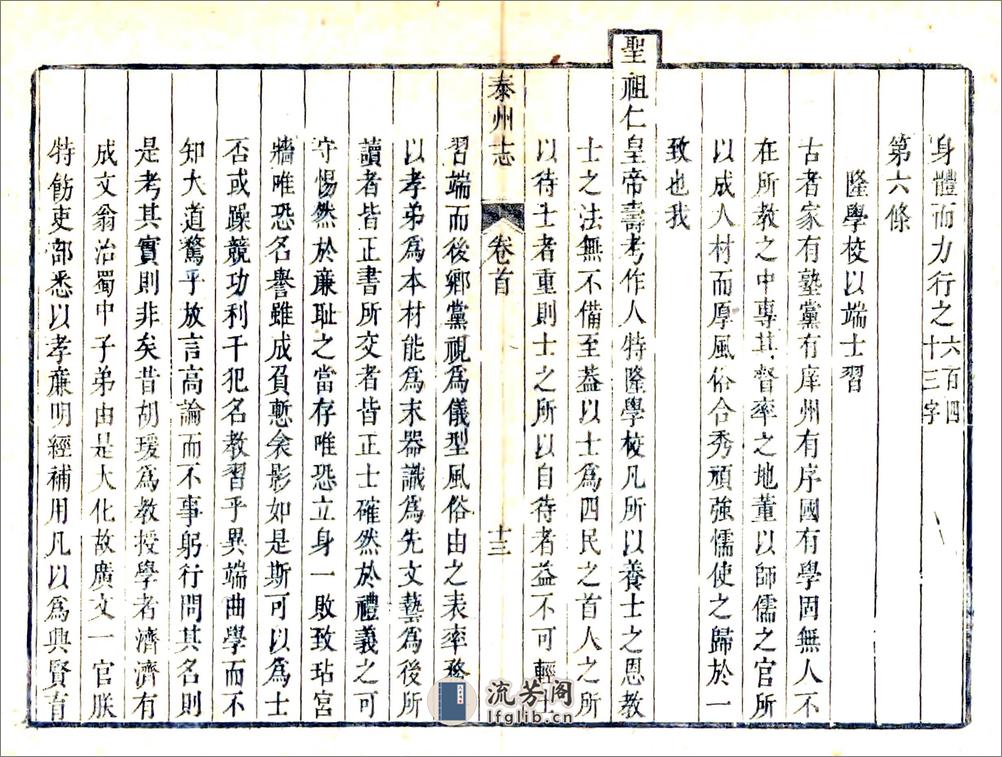 身體而力行之六百四
十三字
第六條
隆學校以端士習
古者家有塾黨有庠州有序國有學固無人不
在所教之中專其督率之地董以師儒之官所
以成人材而厚風俗合秀頑強懦使之歸於一
致也我
聖祖仁皇帝壽考作人特隆學校凡所以養士之恩教
士之法無不備至蓋以士為四民之首人之所
以待士者重則士之所以自待者益不可輕士
泰州志 卷首 十三
習端而後鄉黨視為儀型風俗由之表率務
以孝弟為本材能為末器識為先文藝為後所
讀者皆正書所交者皆正士確然於禮義之可
守惕然於廉耻之當存唯恐立身一敗致玷宮
牆唯恐名譽雖成負慙衾影如是斯可以為士
否或躁競功利干犯名教習乎異端曲學而不
知大道驚乎放言高論而不事躬行問其名則
是考其實則非矣昔胡瑗為教授學者濟濟有
成文翁治蜀中子弟由是大化故廣文一官朕
特飭吏部悉以孝廉明經補用凡以為興賢育
流芳阁
lfglib.cn